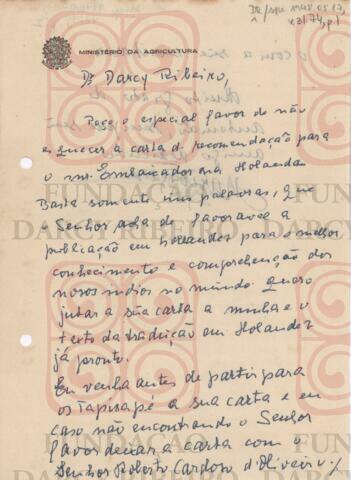 DR/spi 1948.05.13,
x3/74, p1
MINISTÉRIO DA AGRICULTURA
Dr Darcy Ribeiro,
Peço o especial favor de não
esquecer a carta d. recomendação para
o snr. Embaixador na Holanda
Basta somente uns palavras, que
o Senhor acha de favoravel a
publicação em hollandes para o melhor
conhecimento e comprehenção dos
nosos indios no mundo. Quero
juntar a sua carta a minha e o
texto da tradução em Holandez
já pronto.
Eu venho antes de partir para
os Tapirapé a sua carta e em
caso não encontrando o Senhor
favor deixar a carta com o
Senhor Roberto Cardoso d'Oliveira ./.
FUNDAÇÃO
DARCY RIBEIRO